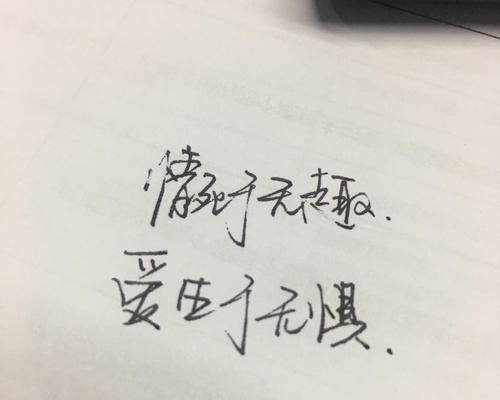 情死于无趣.
爱生于无惧.